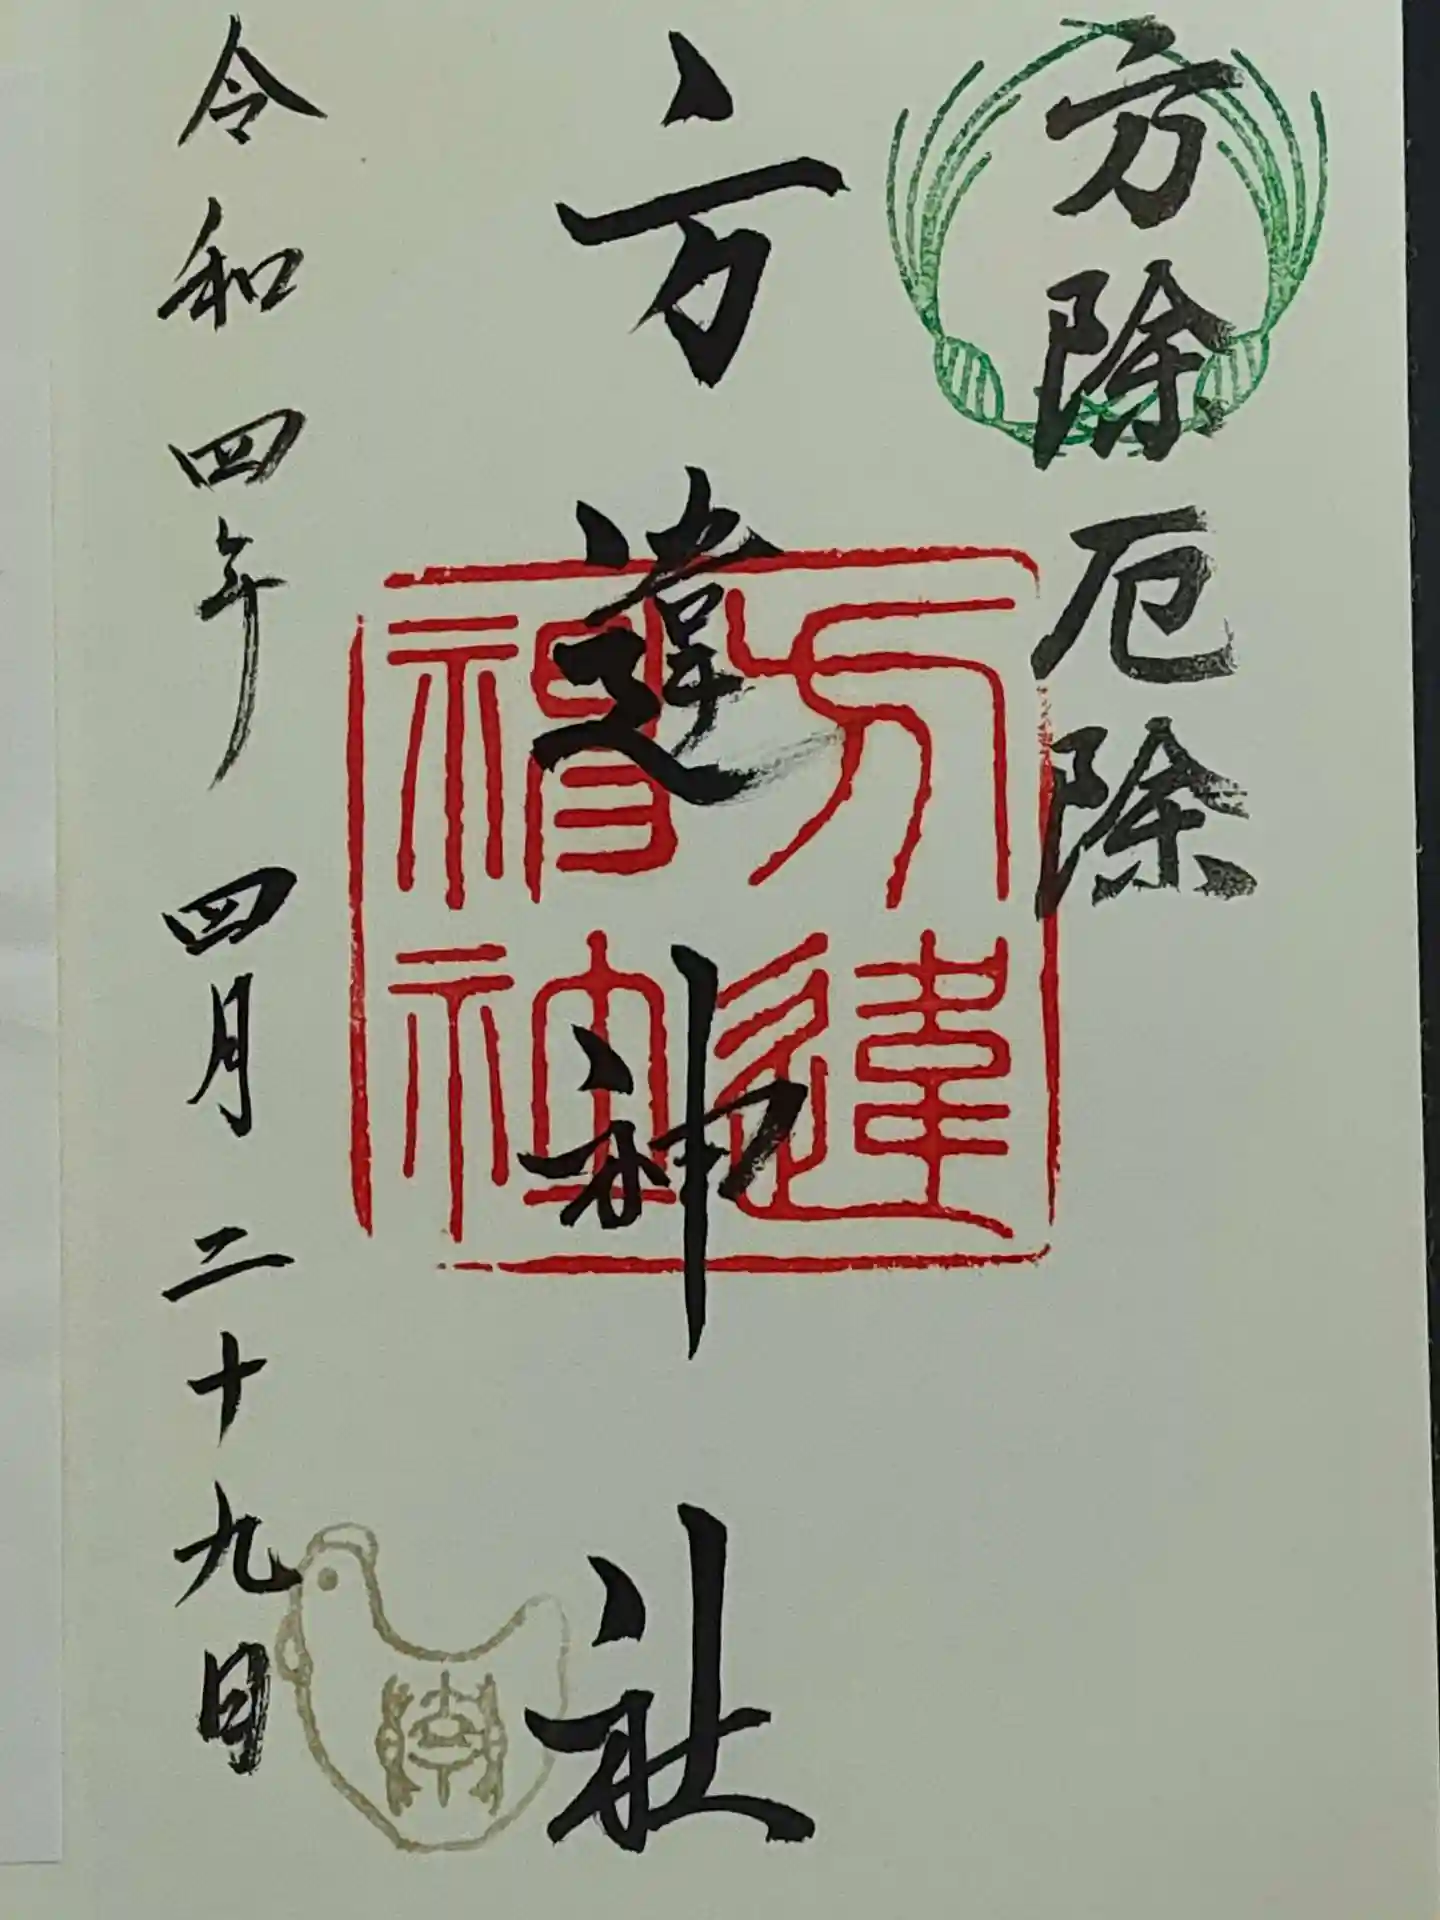 方除厄除
方違神社
方違神社
令和四年四月二十九日